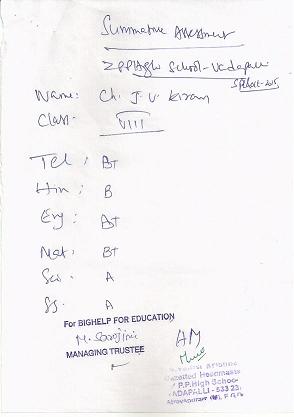 Summative Assessment
ZPPHigh School - Vadapalli
Name: Ch. J. V. Kiran
Class: VIII
Tel : B+
Hin : B
Eng : A+
Mat : B+
Sci : A
SS. A
For BIGHELP FOR EDUCATION
M. Sarojini
MANAGING TRUSTEE
HM
Gazetted Headmaste
P.P. High School
VADAPALLI - 533 23